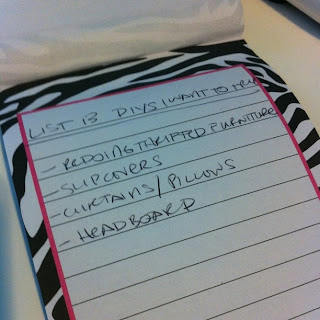 LIST 13 DIYS I WANT TO TRY
- REDOING THRIFTED FURNITURE
- SLIPCOVERS
- CURTAINS/PILLOWS
- HEADBOARD